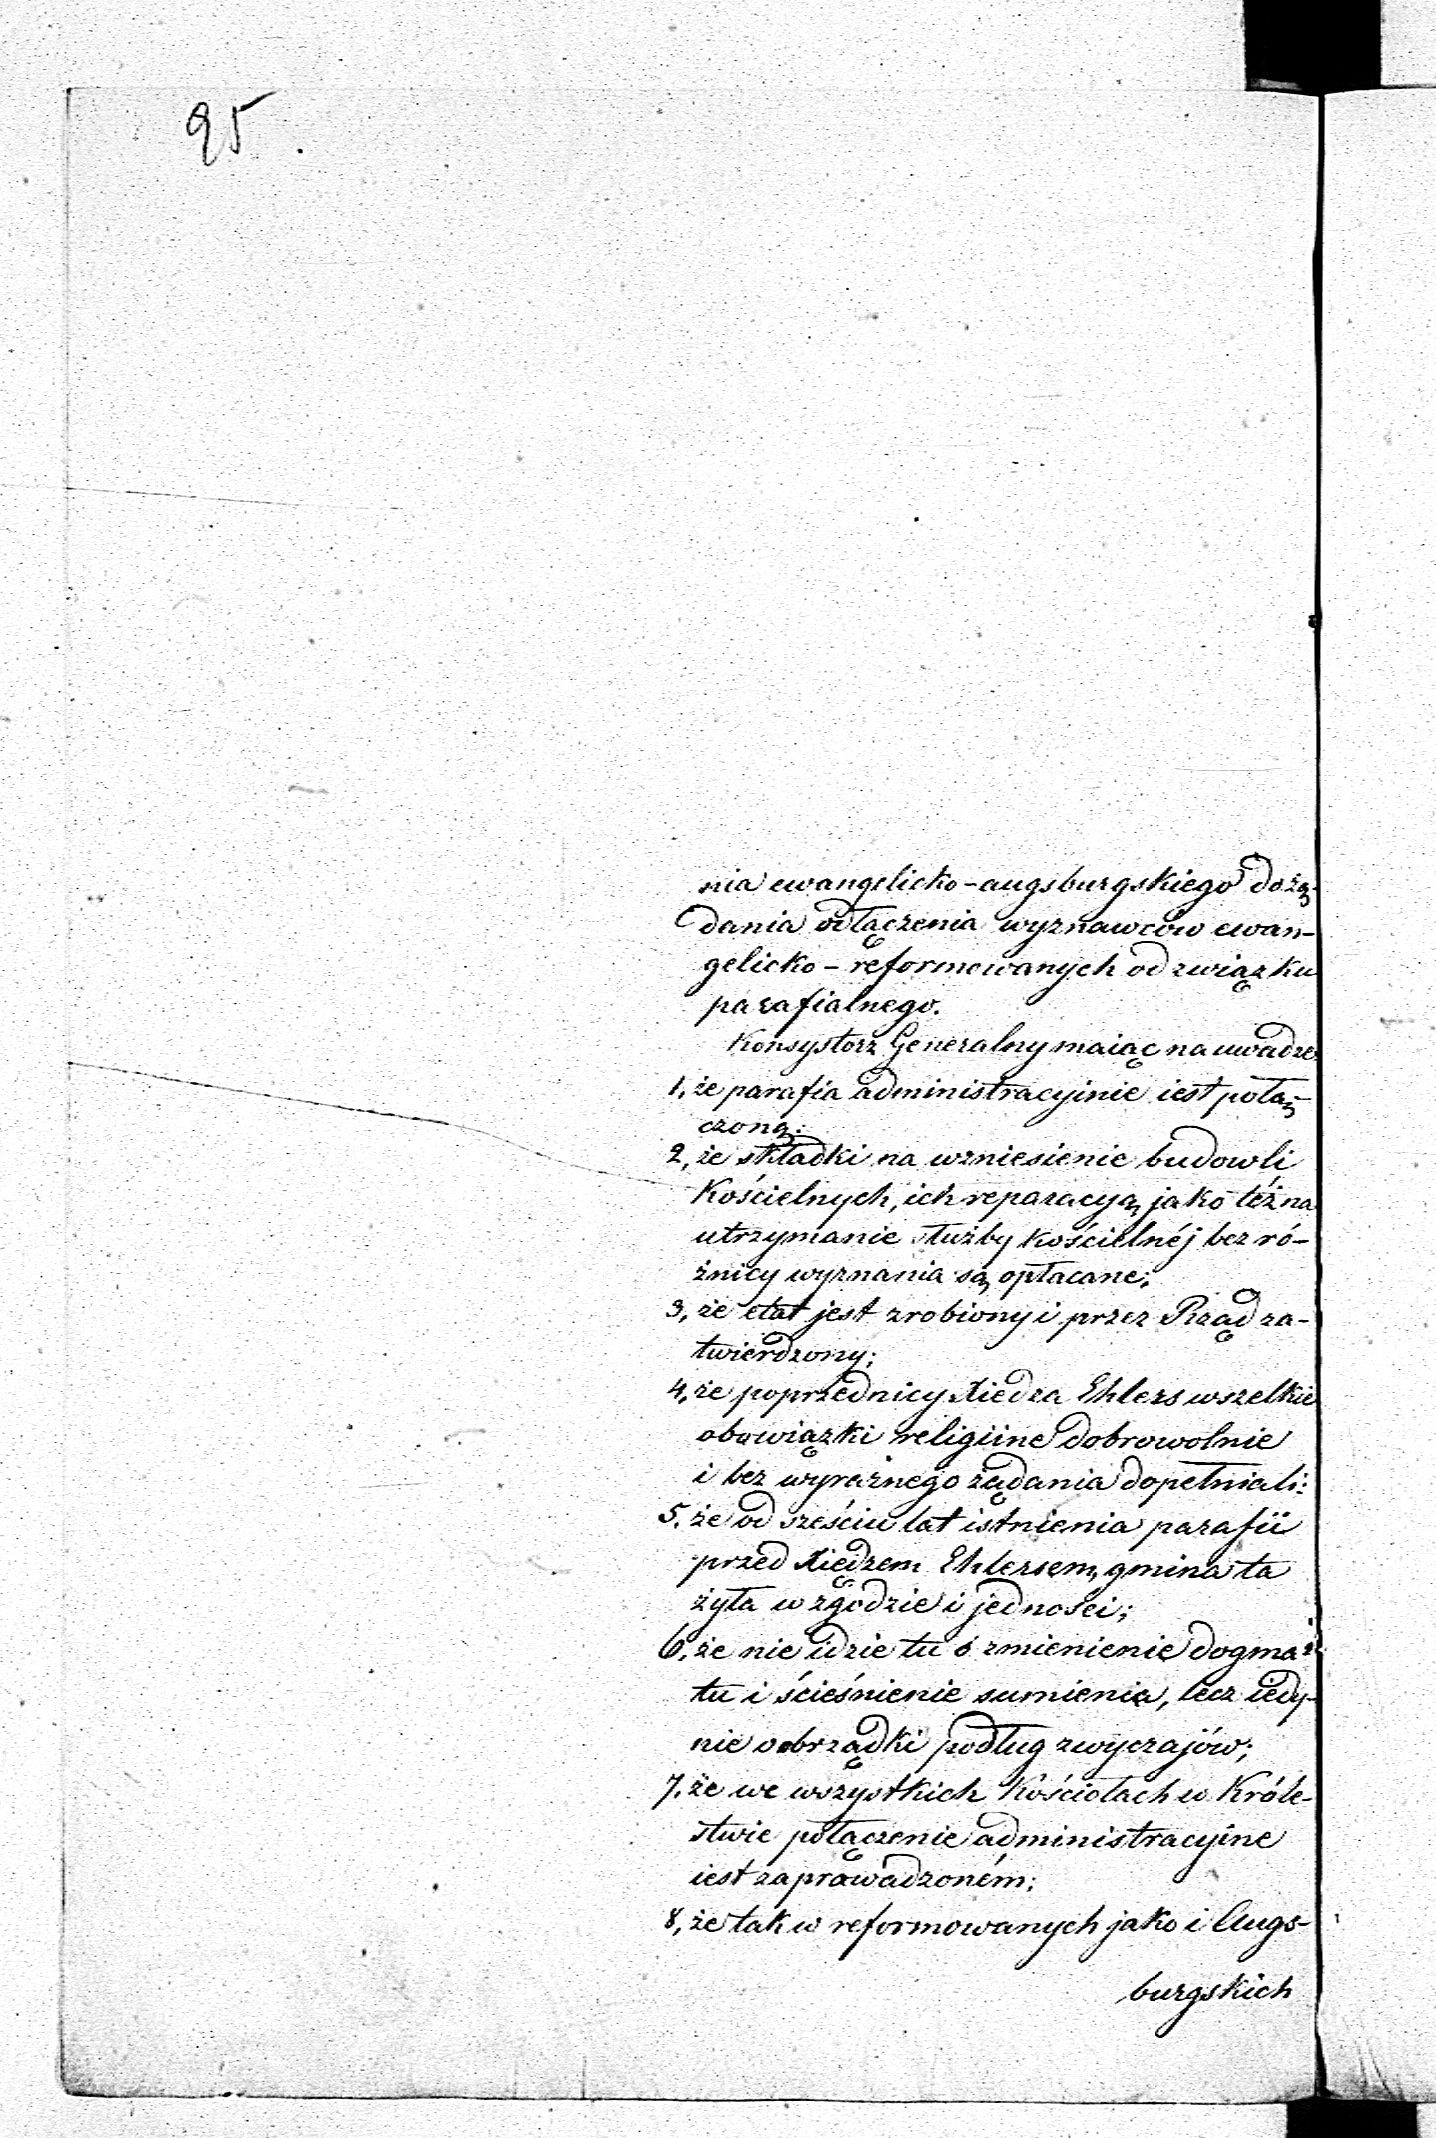 95
nia ewangelicko-augsburgskiego do żą-
dania odłączenia wyznawców ewan-
gelicko-reformowanych od związku
parafialnego.
Konsystorz Generalny maiąc na uwadze
1, że parafia administracyinie iest połą-
czoną;
2, że składki na wzniesienie budowli
Kościelnych, ich reparacyą, jako téż na
utrzymanie służby kościelnéj bez ró-
żnicy wyznania są opłacane;
3, że etat jest zrobiony i przez Rząd za-
twierdzony;
4, że poprzednicy Xiedza Ehlers wszelkie
obowiązki religiine dobrowolnie
i bez wyraźnego żądania dopełniali;
5, że od sześciu lat istnienia parafii
przed Xiędzem Ehlersem, gmina ta
żyła w zgodzie i jedności;
6, że nie idzie tu o zmienienie dogma-
tu i ścieśnienie sumienia, lecz iedy-
nie o obrządki podług zwyczajów;
7, że we wszystkich Kościołach w Króle-
stwie połączenie administracyine
iest zaprowadzoném;
8, że tak w reformowanych jako i Augs-
burgskich